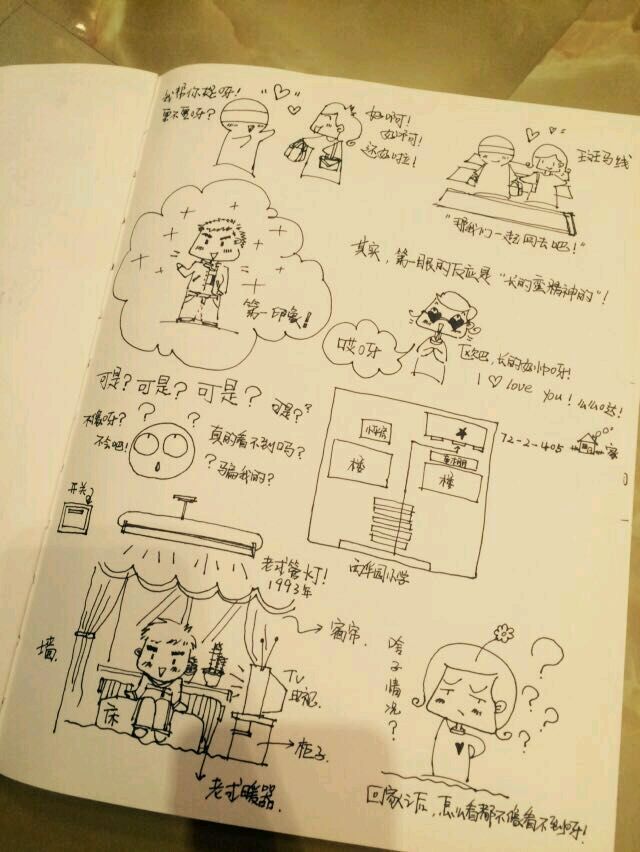 我帮你提呀!
要不要呀?
好啊!
好啊!
还好啦!
斑马线
"跟我们一起回去吧!"
第一印象!
其实,第一眼的反应是"长的蛮精神的"!
哎呀
欧巴,长的好帅呀!
I ♡ love you! 么么哒!
可是?可是?可是?可是??
不像呀?
不会吧!
真的看不到吗?
骗我的?
楼
楼
72-2-405
家
小学
开关
老式管灯!
1993年
窗帘.
墙.
床
TV
电视.
柜子.
老式暖器.
啥子情况?
回家之后,怎么看都不像看不到呀!